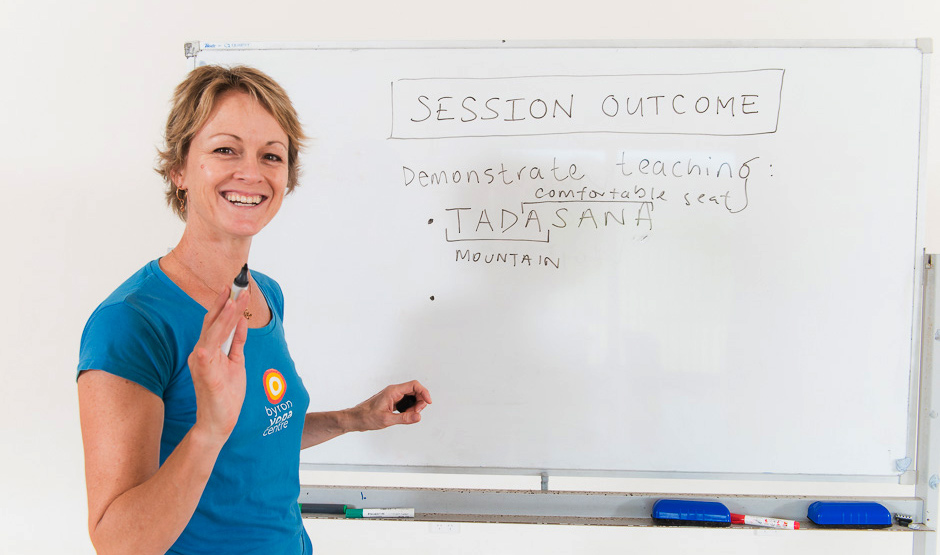 SESSION OUTCOME
Demonstrate teaching:
comfortable seat
• TADASANA
MOUNTAIN
•
byron
yoga
centre